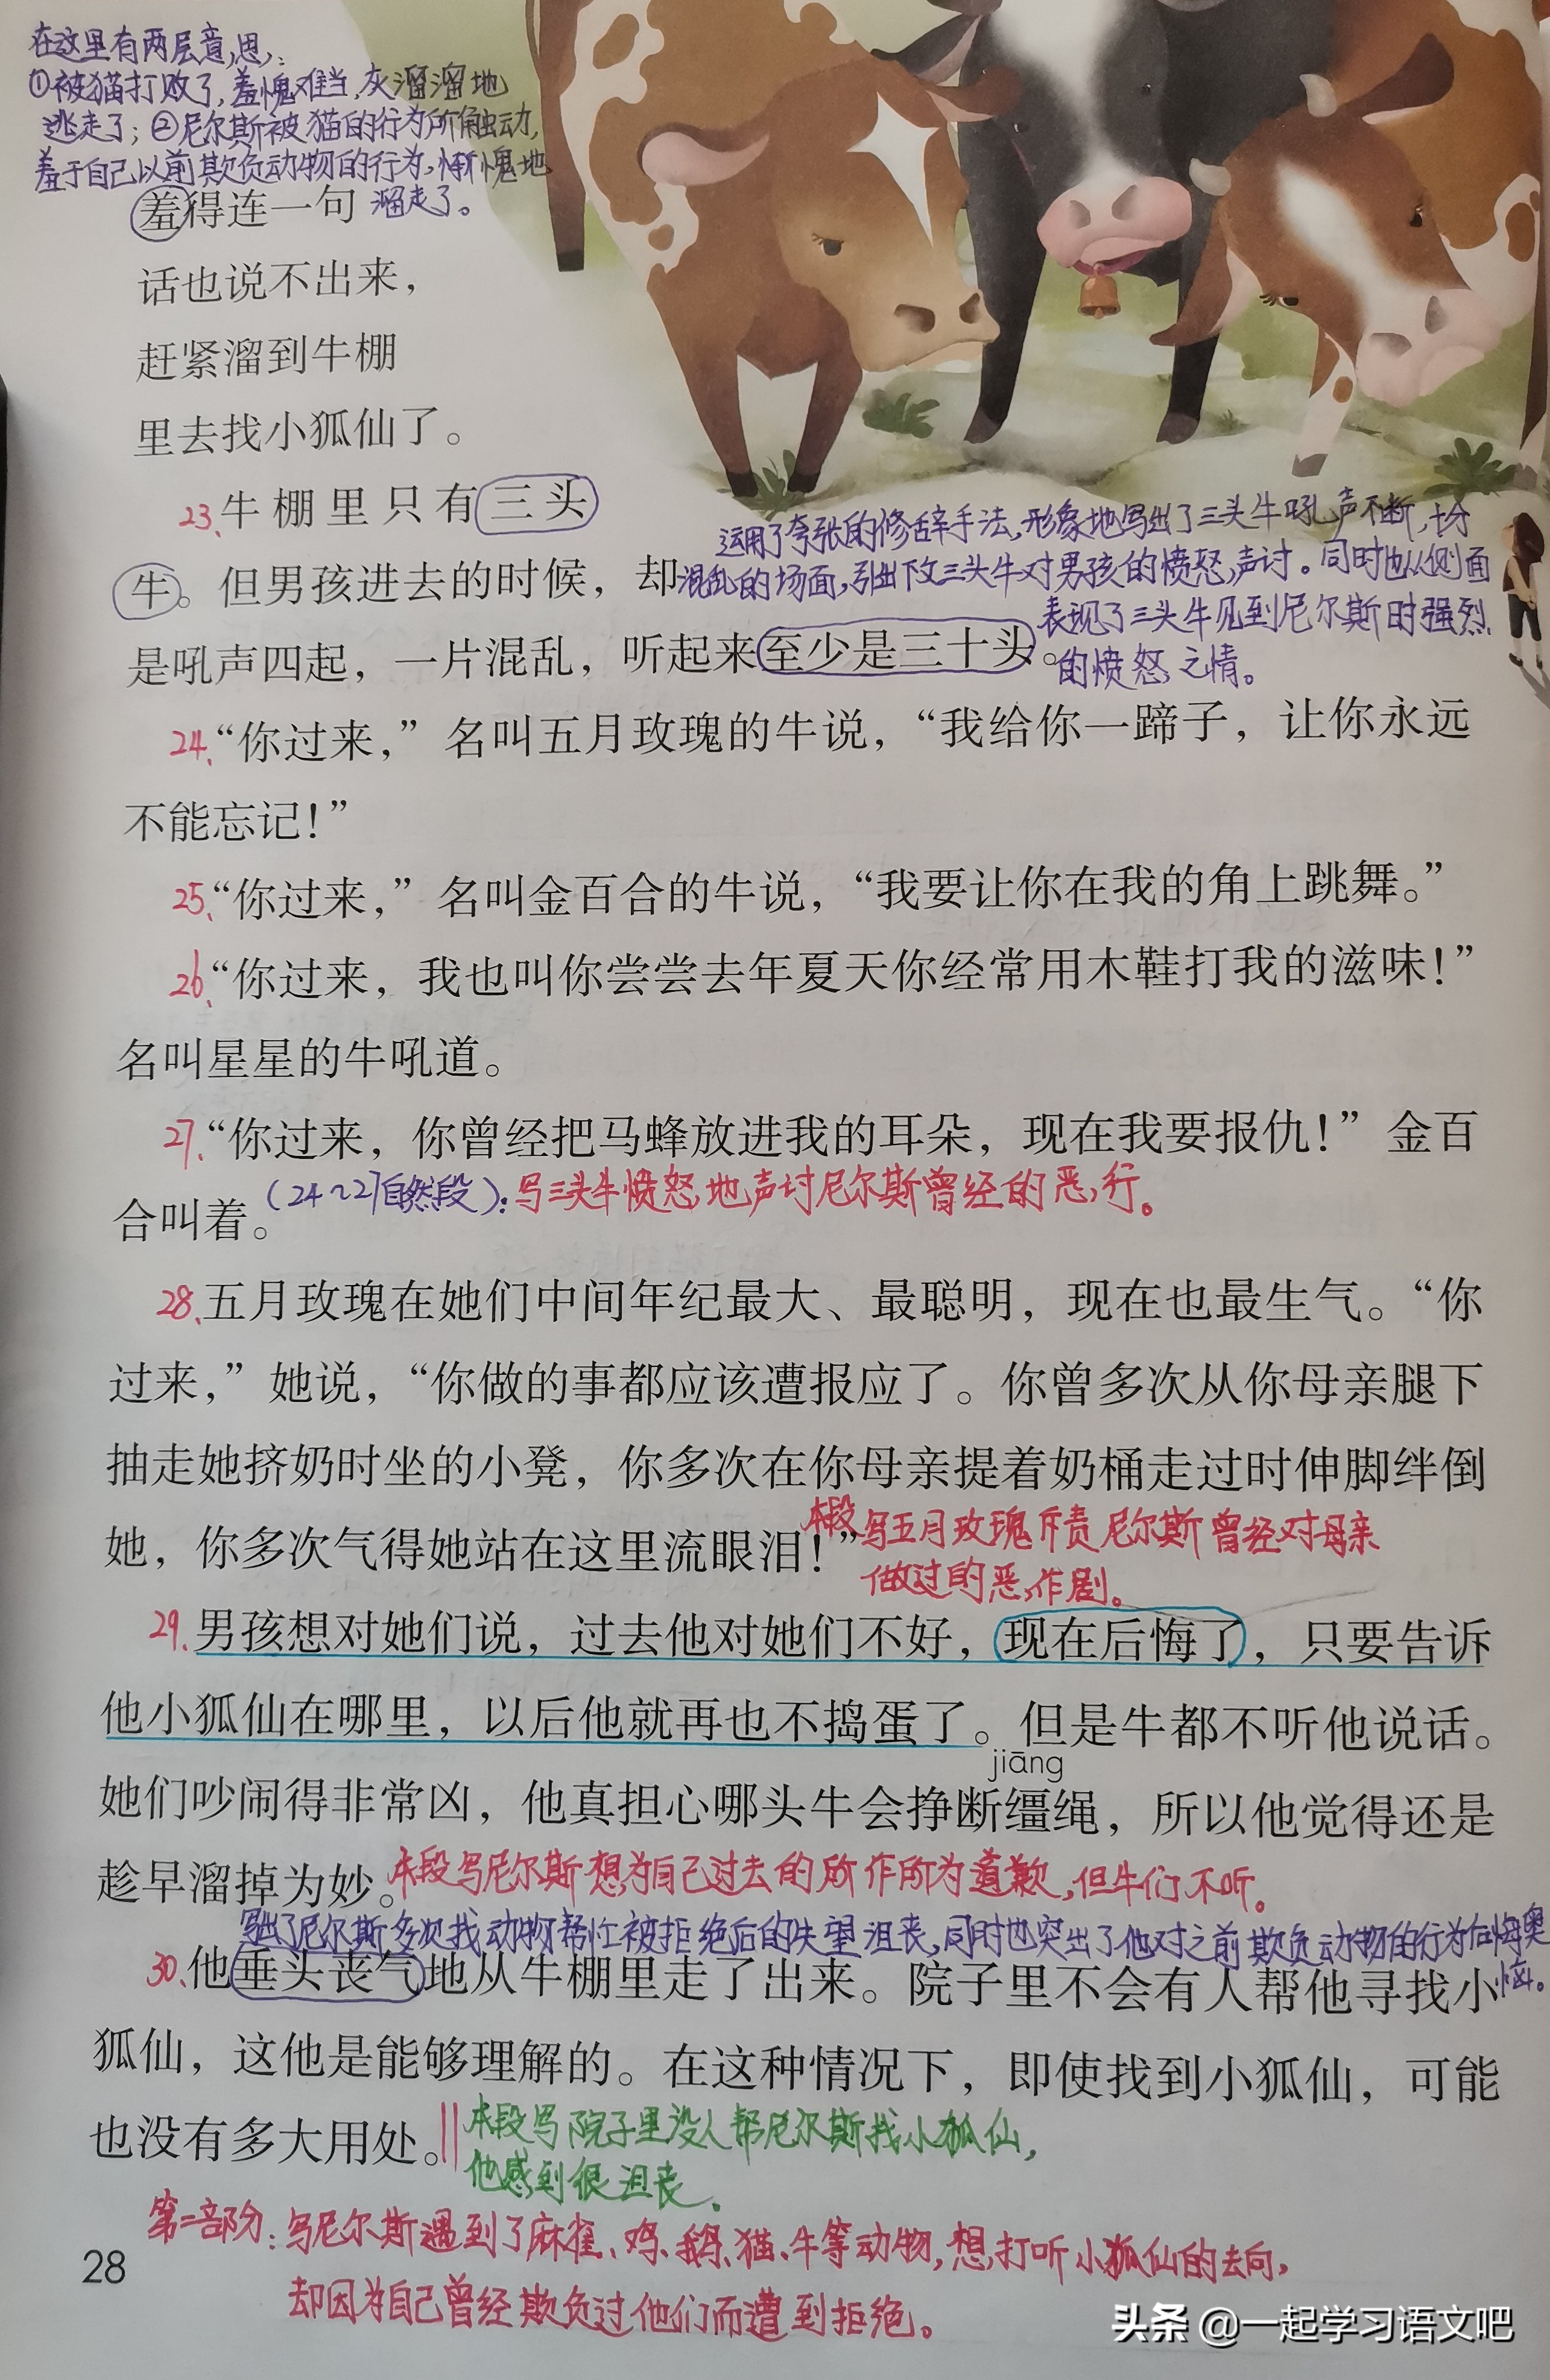 在这里有两层意思:
①被猫打败了,羞愧难当,灰溜溜地
逃走了;②尼尔斯被猫的行为所触动,
羞于自己以前欺负动物的行为,惭愧地
溜走了。
羞得连一句
话也说不出来，
赶紧溜到牛棚
里去找小狐仙了。
23.牛棚里只有三头
运用了夸张的修辞手法,形象地写出了三头牛吼声不断,十分
牛。但男孩进去的时候，却
混乱的场面,引出下文三头牛对男孩的愤怒,声讨。同时也从侧面
表现了三头牛见到尼尔斯时强烈
是吼声四起，一片混乱，听起来至少是三十头。
的愤怒之情。
24.“你过来，”名叫五月玫瑰的牛说，“我给你一蹄子，让你永远
不能忘记！”
25.“你过来，”名叫金百合的牛说，“我要让你在我的角上跳舞。”
26.“你过来，我也叫你尝尝去年夏天你经常用木鞋打我的滋味！”
名叫星星的牛吼道。
27.“你过来，你曾经把马蜂放进我的耳朵，现在我要报仇！”金百
合叫着。(24~27自然段):写三头牛愤怒地声讨尼尔斯曾经的恶行。
28.五月玫瑰在她们中间年纪最大、最聪明，现在也最生气。“你
过来，”她说，“你做的事都应该遭报应了。你曾多次从你母亲腿下
抽走她挤奶时坐的小凳，你多次在你母亲提着奶桶走过时伸脚绊倒
她，你多次气得她站在这里流眼泪！”本段写五月玫瑰斥责尼尔斯曾经对母亲
做过的恶作剧。
29.男孩想对她们说，过去他对她们不好，现在后悔了，只要告诉
他小狐仙在哪里，以后他就再也不捣蛋了。但是牛都不听他说话。
jiāng
她们吵闹得非常凶，他真担心哪头牛会挣断缰绳，所以他觉得还是
趁早溜掉为妙。本段写尼尔斯想为自己过去的所作所为道歉,但牛们不听。
写出了尼尔斯多次找动物帮忙被拒绝后的失望沮丧,同时也突出了他对之前欺负动物的行为后悔奥
恼。
30.他垂头丧气地从牛棚里走了出来。院子里不会有人帮他寻找小
狐仙，这他是能够理解的。在这种情况下，即使找到小狐仙，可能
也没有多大用处。‖本段写院子里没人帮尼尔斯找小狐仙,
他感到很沮丧。
第二部分:写尼尔斯遇到了麻雀、鸡、鹅、猫、牛等动物,想打听小狐仙的去向,
却因为自己曾经欺负过他们而遭到拒绝。
28
头条 @一起学习语文吧